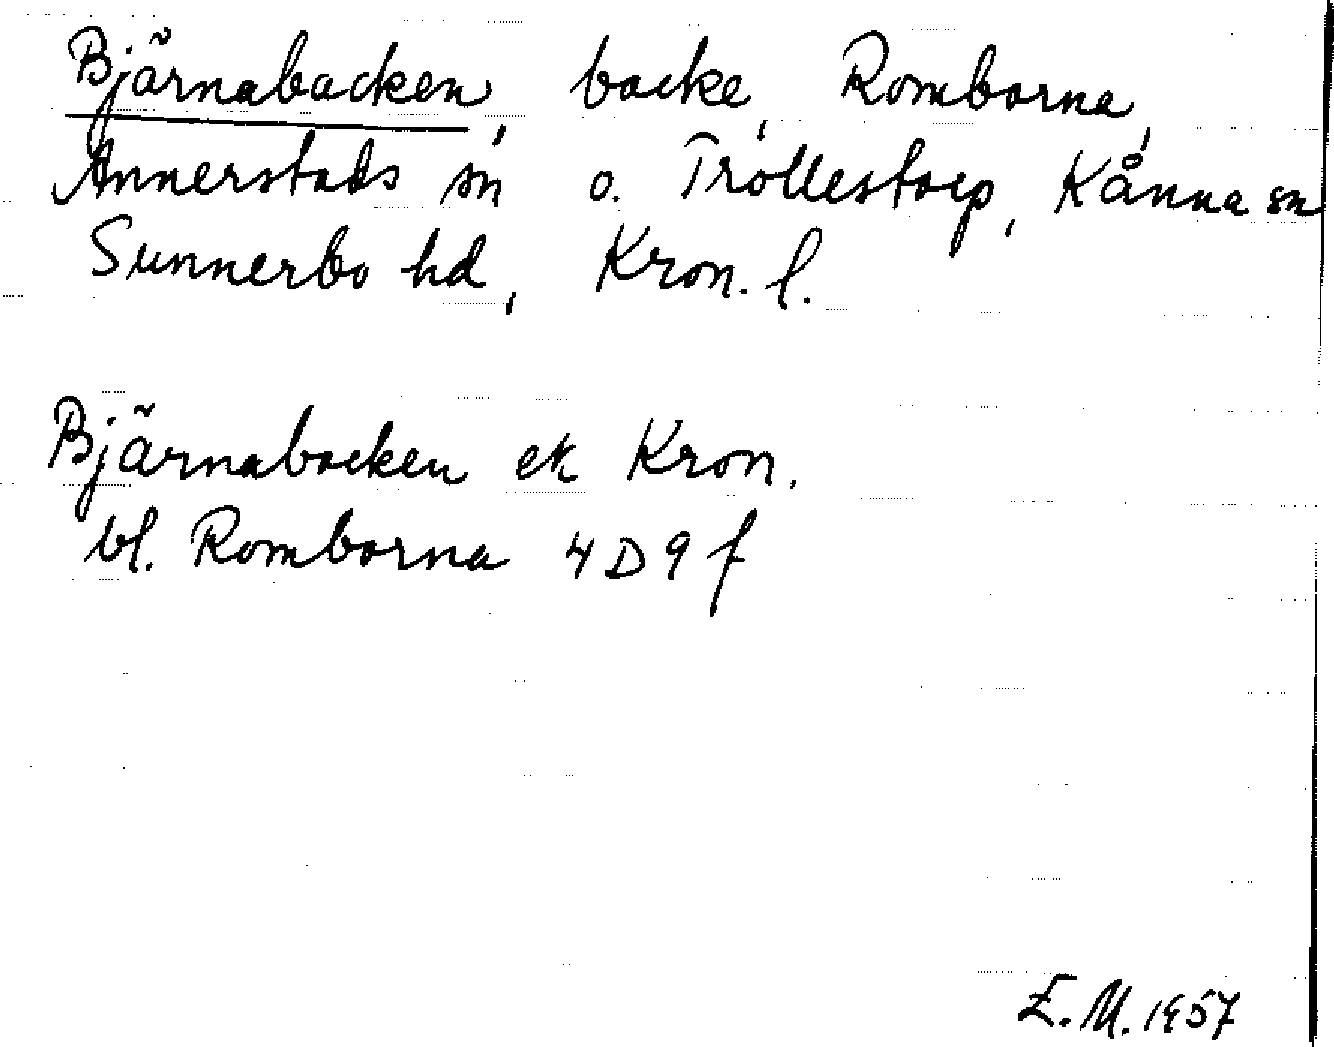 Bjärnabacken, backe, Romborna,
Annerstads sn o. Trollestorp, Kånna sn
Sunnerbo hd, Kron. l.
Bjärnabacken ek Kron.
bl. Romborna 4D9f
E.M. 1957